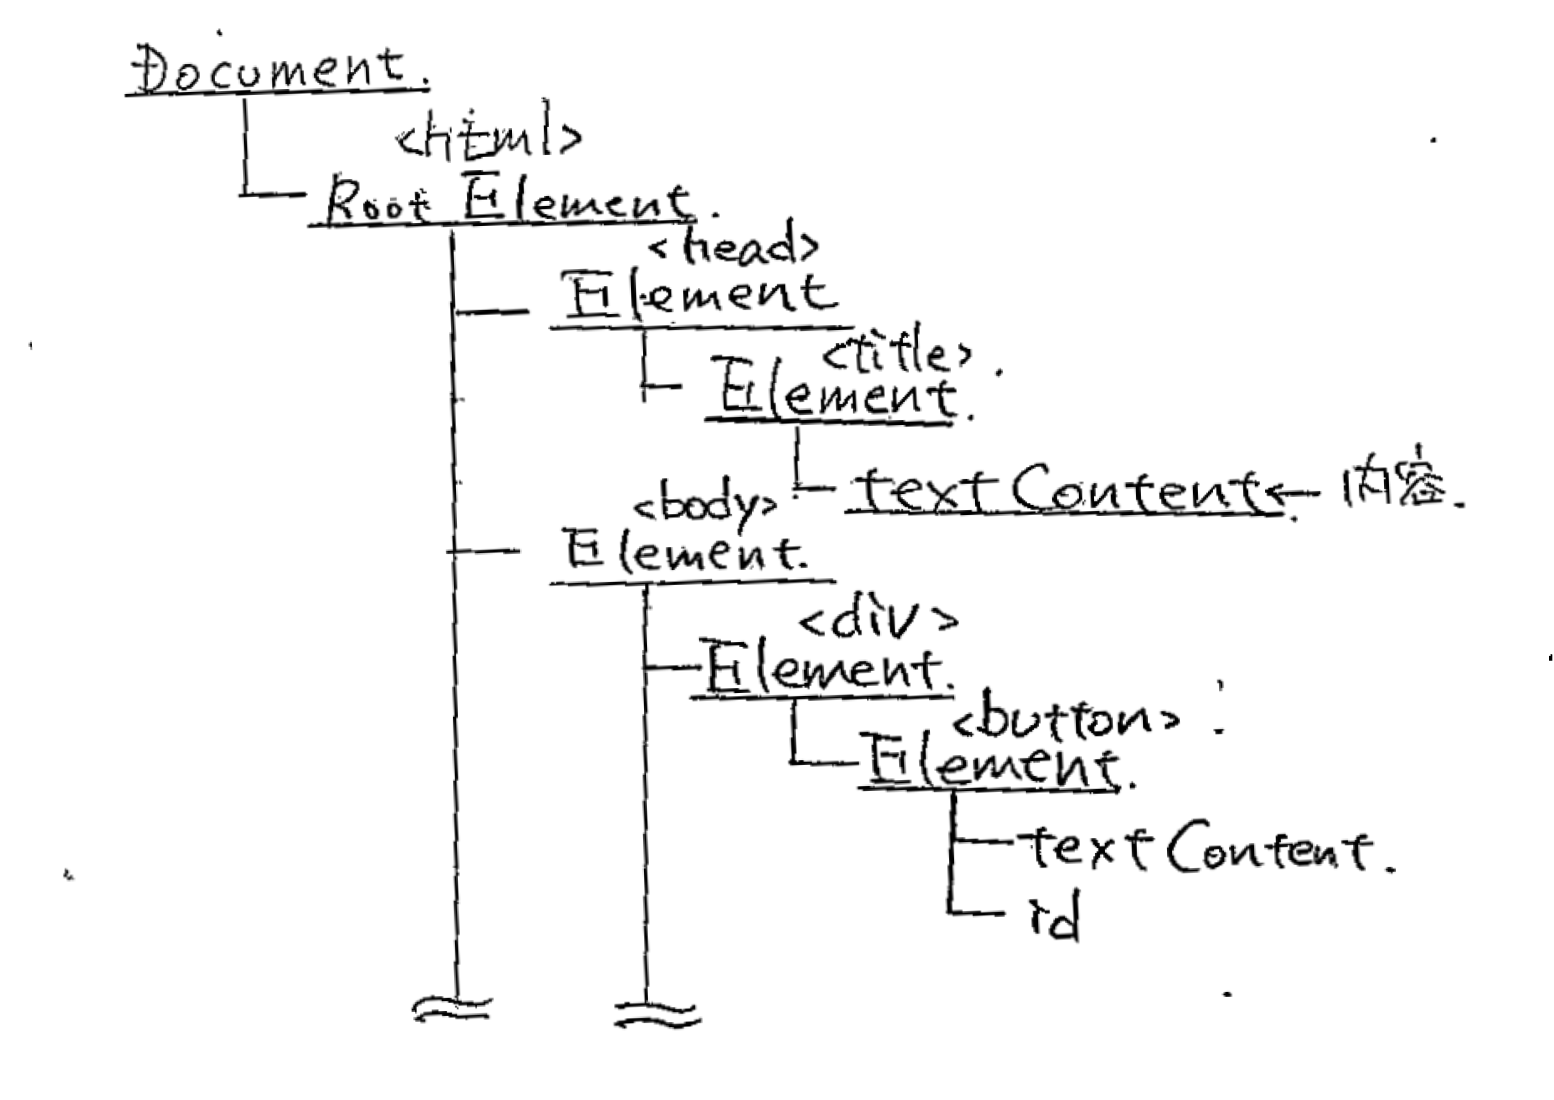 Document.
<html>
Root Element.
<head>
Element
<title>.
Element.
textContent ← 内容.
<body>
Element.
<div>
Element.
<button>
Element.
textContent.
id